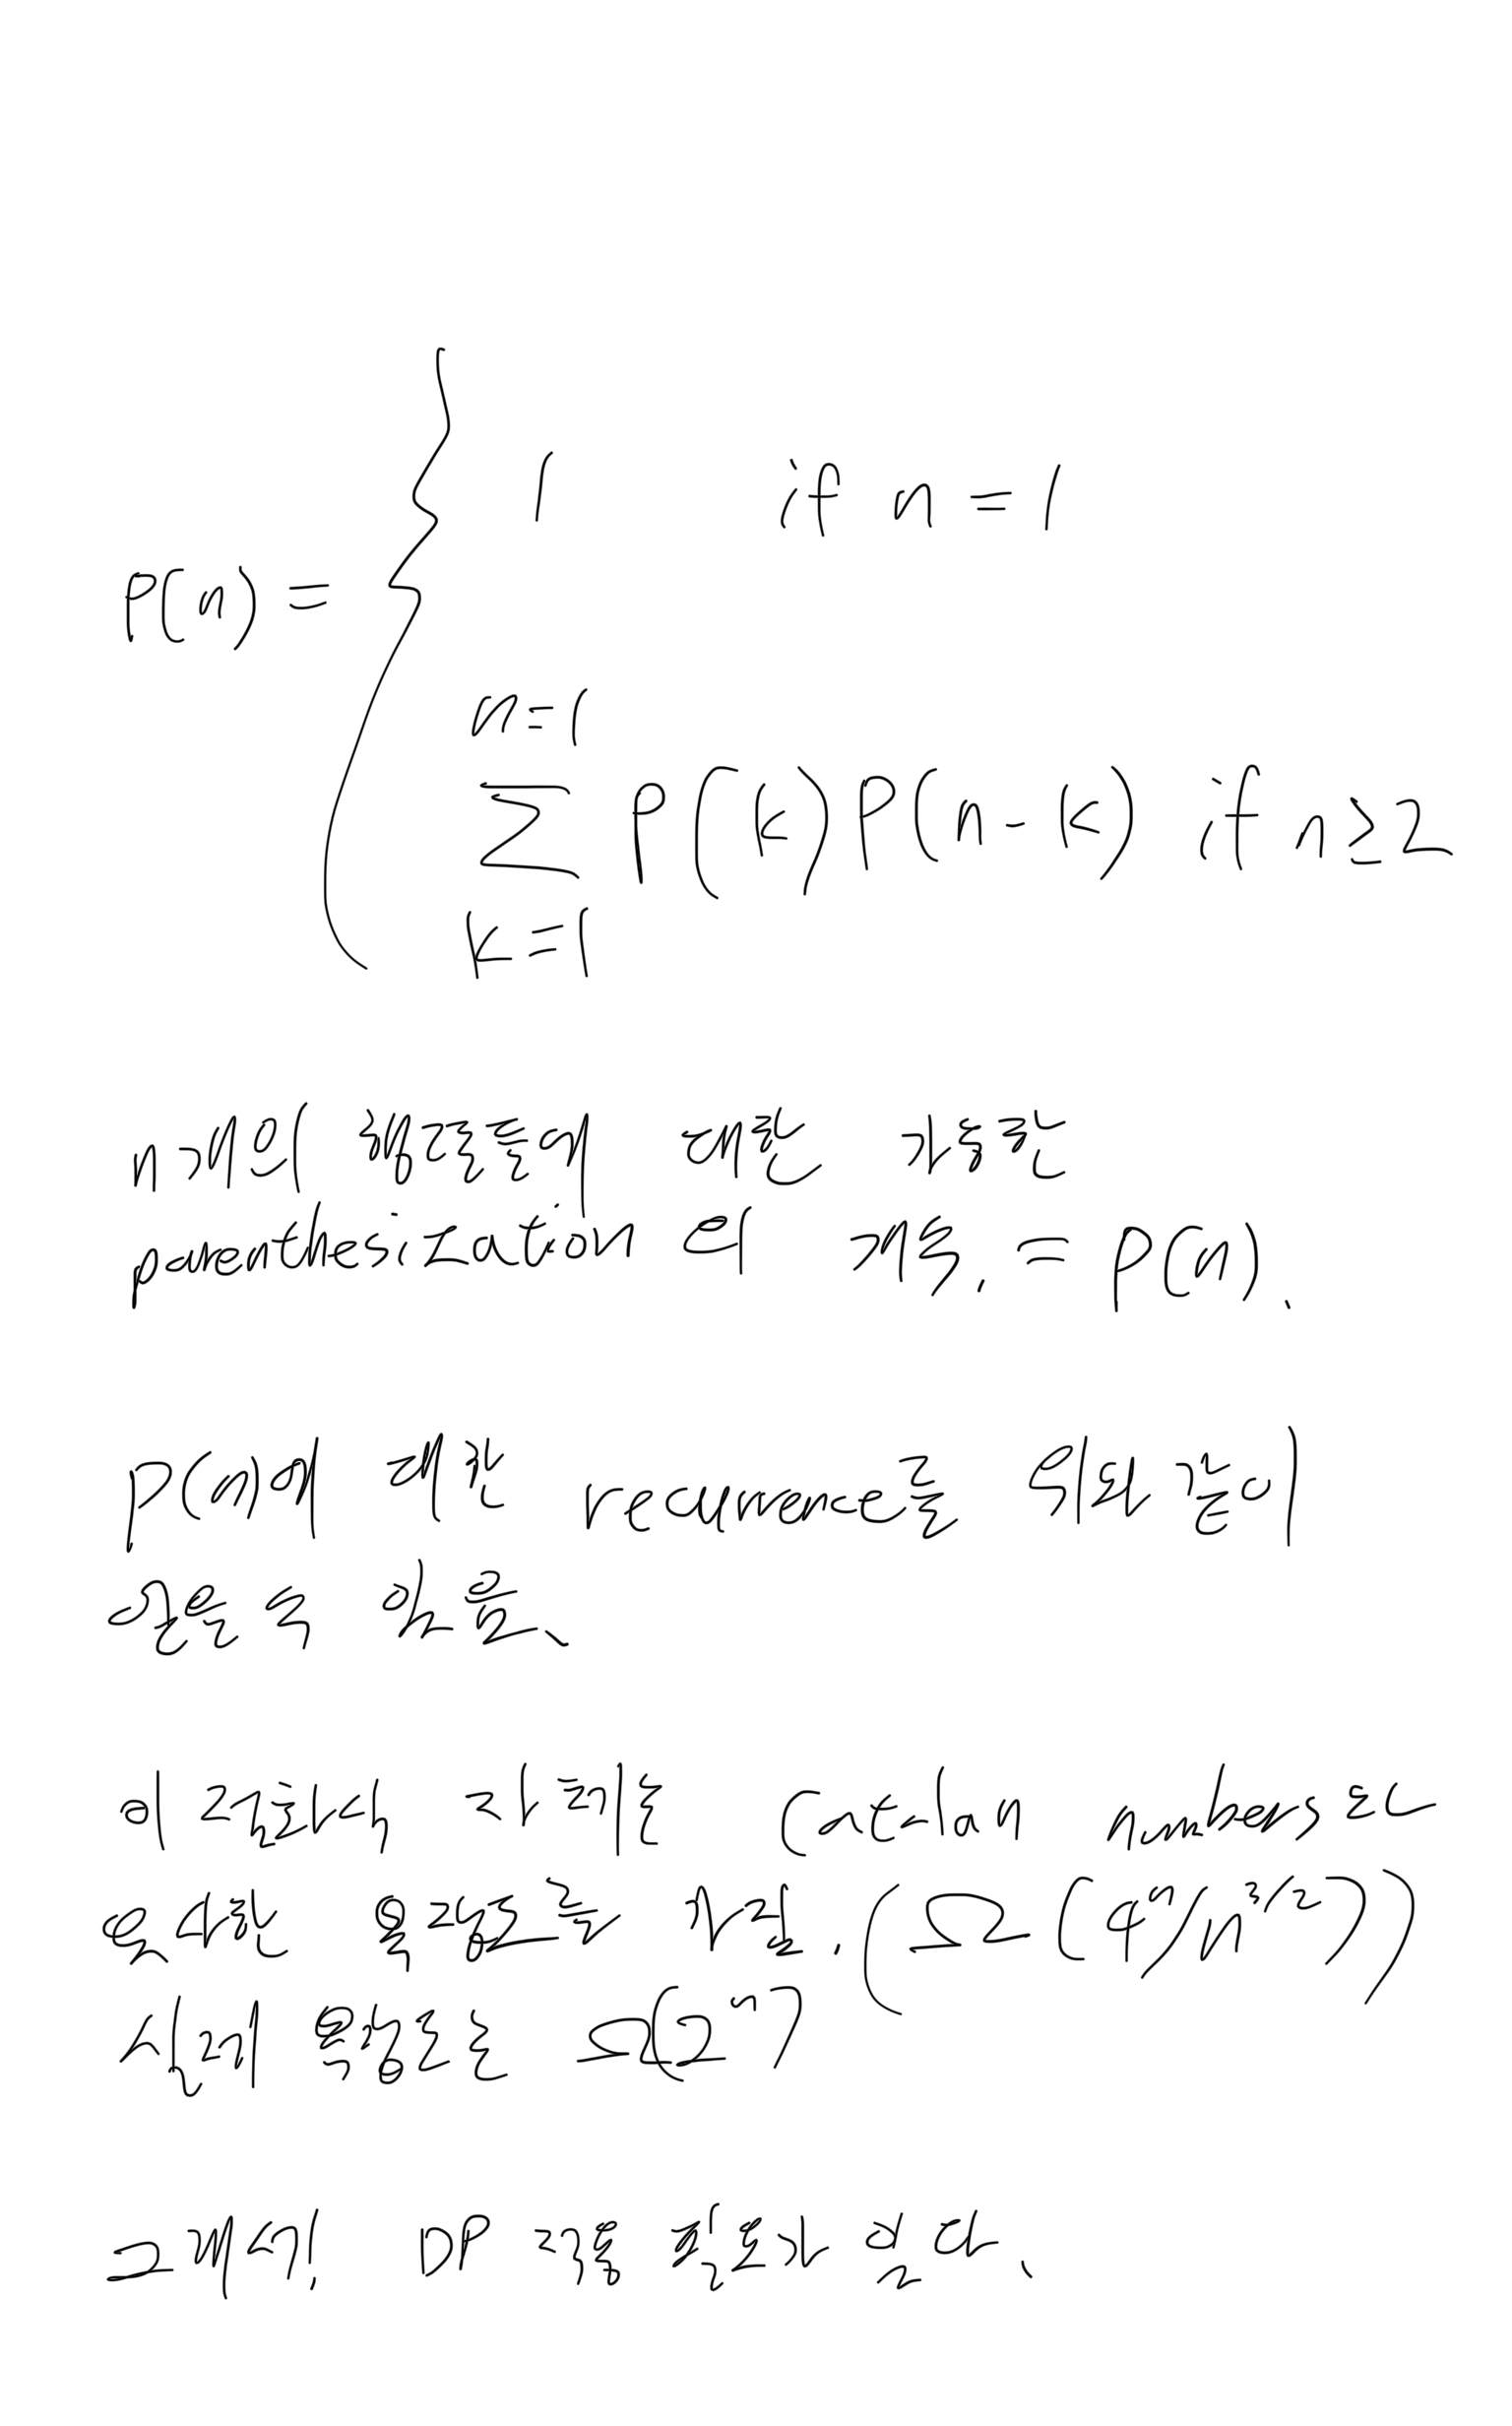 1 if n = 1
P(n) =
n=1
∑ P(k)P(n-k) if n≥2
k=1
n개의 행렬들에 대한 가능한
parantheization의 개수. = P(n).
P(n)에 대한 recurrence를 위와 같이
얻을 수 있음.
이 점화식 크기는 Catalan numbers와
유사한 을 가짐. (Ω(4ⁿ/n^{3/2}))
시간 복잡도는 Ω(2ⁿ)
그래서, DP 적용 필요가 있다.